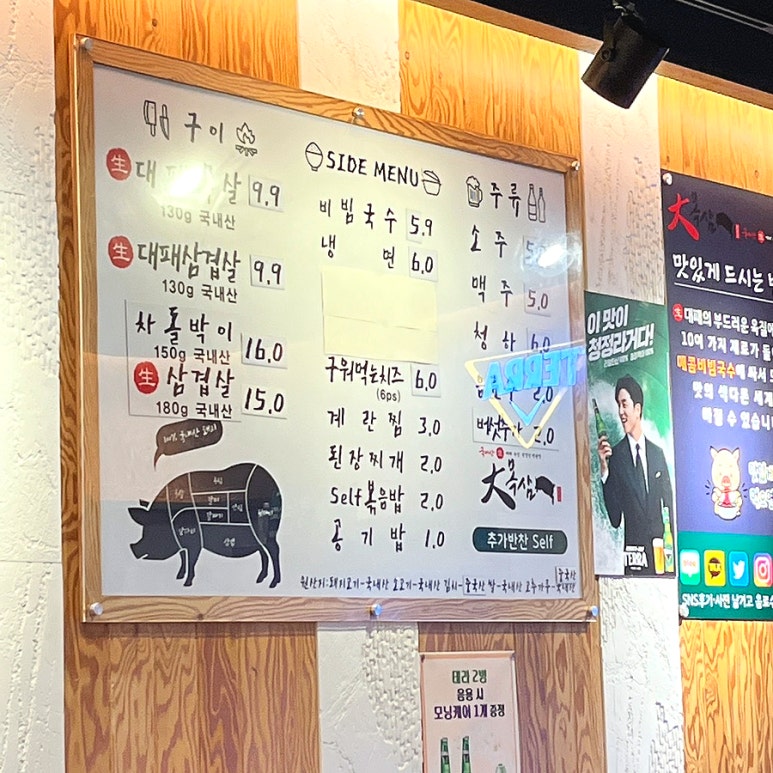 구이
生 대패목살 9.9
130g 국내산
生 대패삼겹살 9.9
130g 국내산
차돌박이 16.0
150g 국내산
生 삼겹살 15.0
180g 국내산
100% 국내산 돼지
SIDE MENU
비빔국수 5.9
냉면 6.0
구워먹는치즈 6.0
(6ps)
계란찜 3.0
된장찌개 2.0
Self볶음밥 2.0
공기밥 1.0
주류
소주
맥주 5.0
청하 6.0
2.0
2.0
TERRA
大목삼
추가반찬 Self
원산지:돼지고기-국내산 소고기-국내산 김치-중국산 쌀-국내산 고춧가루-중국산
이 맛이
청정라거다!
TERRA
大목삼
맛있게 드시는
生 대패의 부드러운
10여 가지 재료가
매콤비빔국수에 싸서
맛의 색다른 세계
빠질 수 있습니
TALK
SNS후기·사진 남기고
테라 2병
음용 시
모닝케어 1개 증정